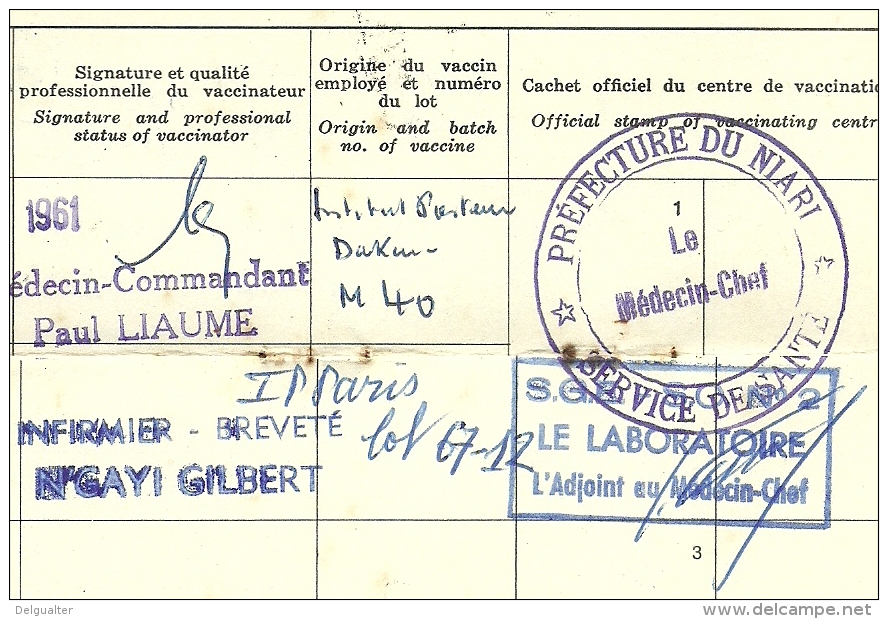 Signature et qualité
professionnelle du vaccinateur
Signature and professional
status of vaccinator
Origine du vaccin
employé et numéro
du lot
Origin and batch
no. of vaccine
Cachet officiel du centre de vaccinatio
Official stamp of vaccinating centr
1961
édecin-Commandant
Paul LIAUME
Institut Pasteur
Dakar
M 40
PRÉFECTURE DU NIARI
1
Le
Médecin-Chef
SERVICE DE SANTÉ
INFIRMIER - BREVETÉ
N'GAYI GILBERT
IP Paris
lot 67-12
S.G. No 2
LE LABORATOIRE
L'Adjoint au Médecin-Chef
3
Delgualter
delcampe.net